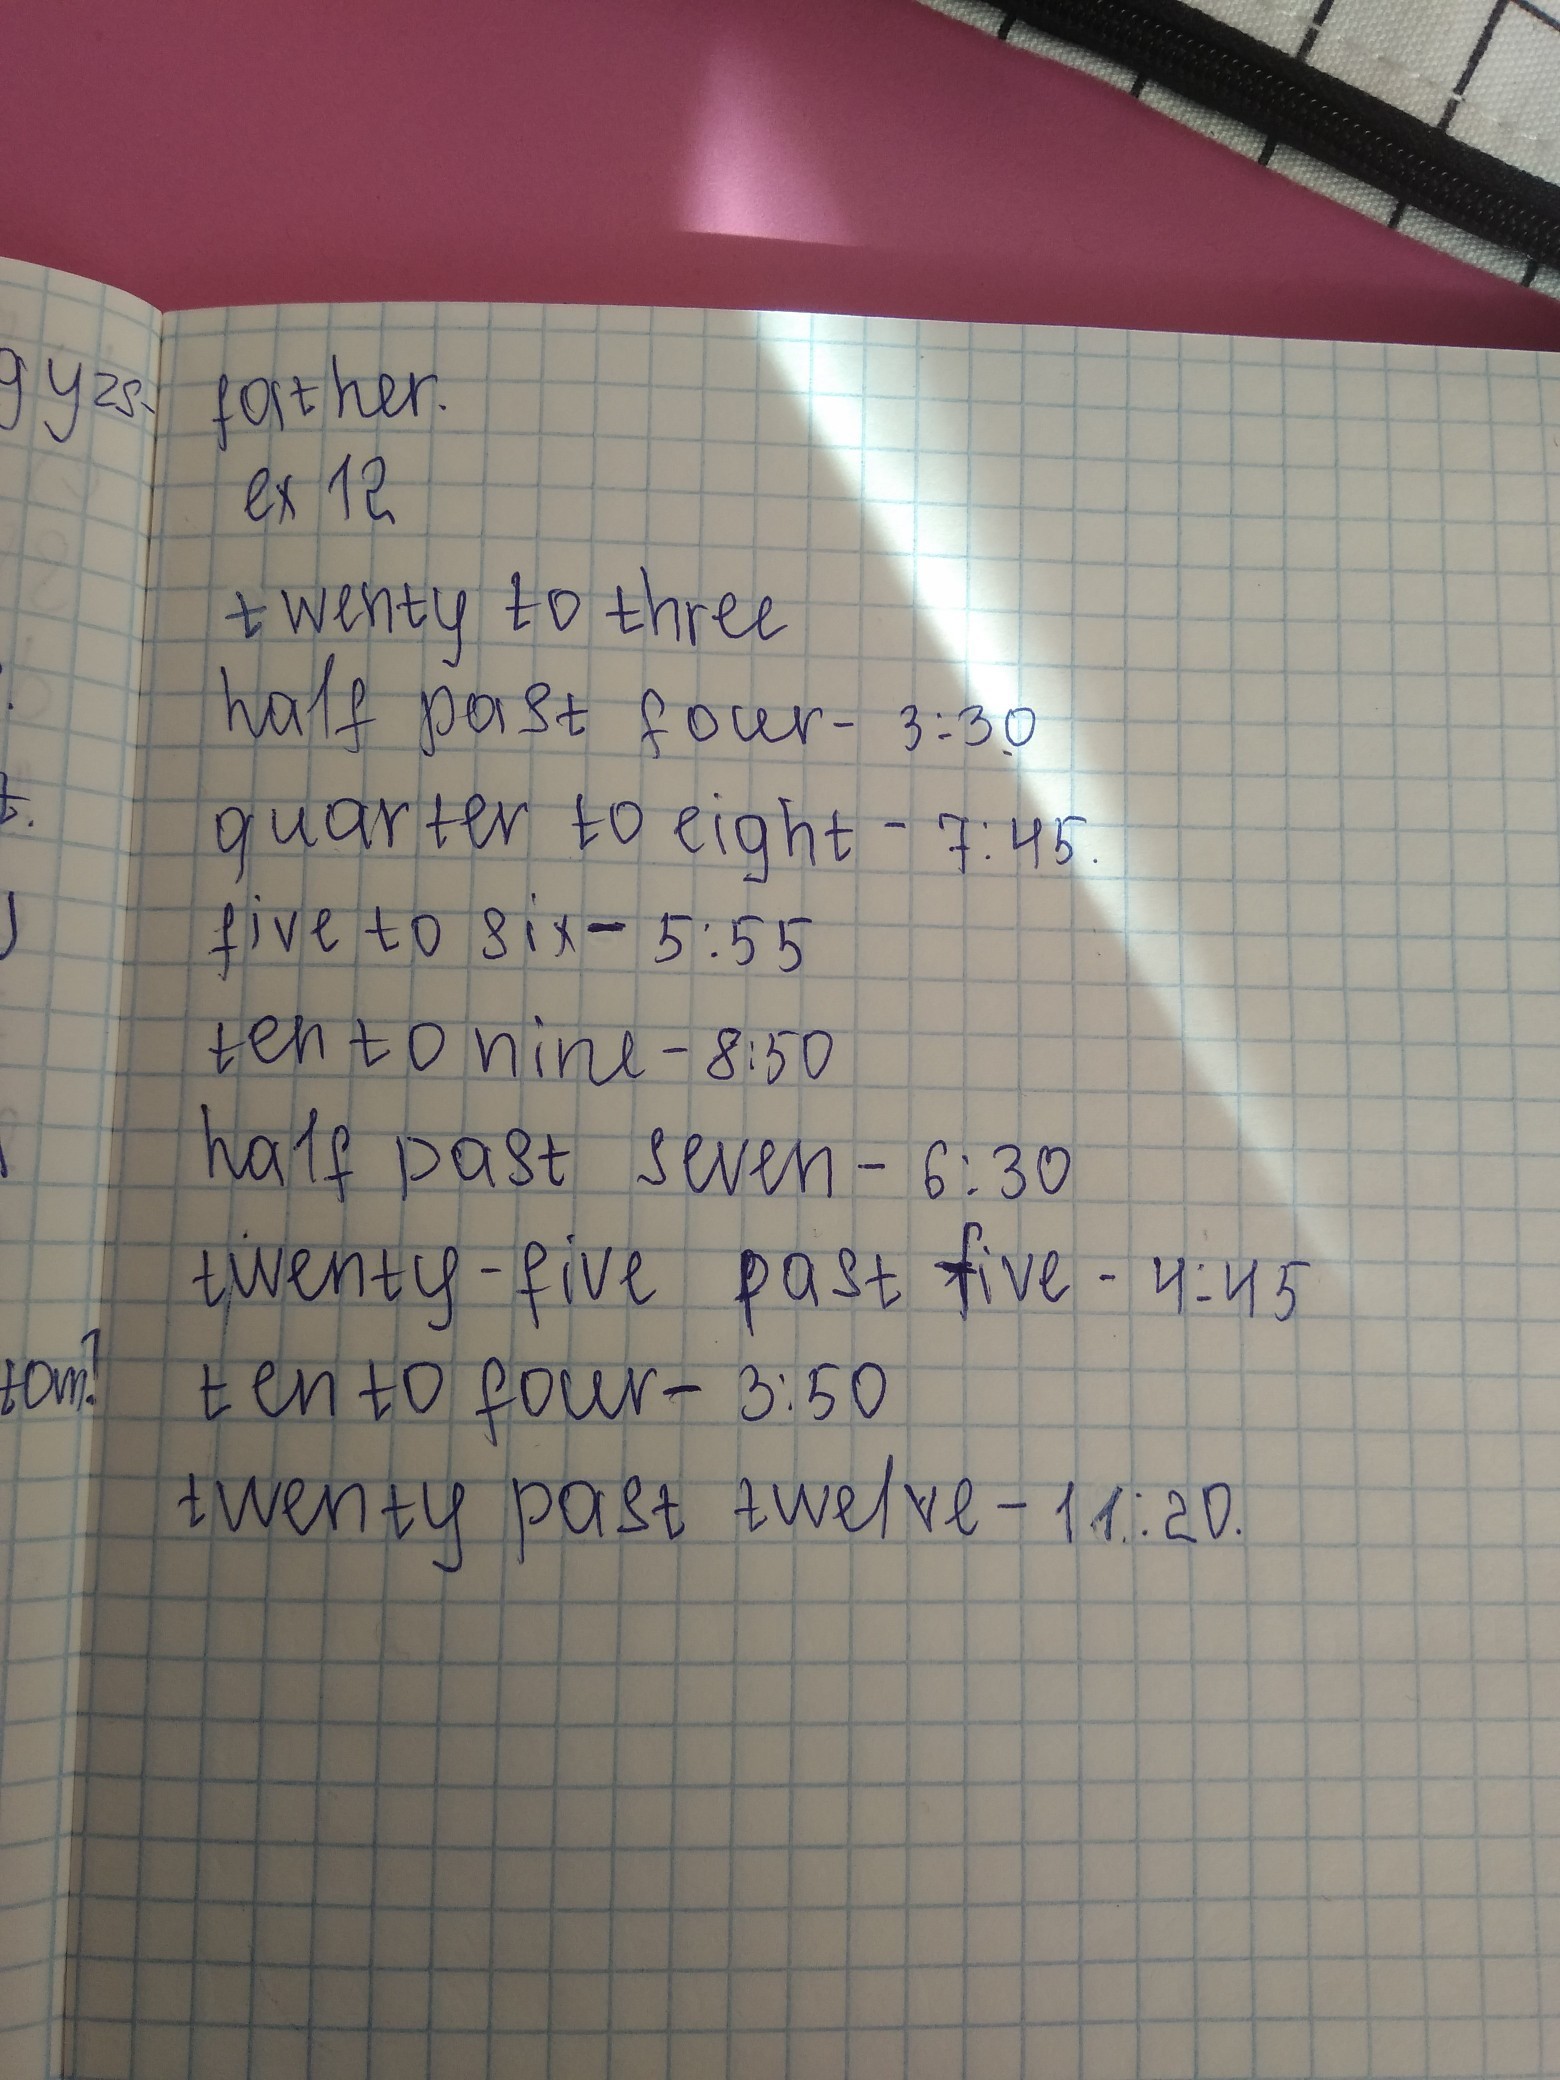 father.
ex 12
twenty to three
half past four - 3:30
quarter to eight - 7:45.
five to six - 5:55
ten to nine - 8:50
half past seven - 6:30
twenty-five past five - 4:45
ten to four - 3:50
twenty past twelve - 11:20.